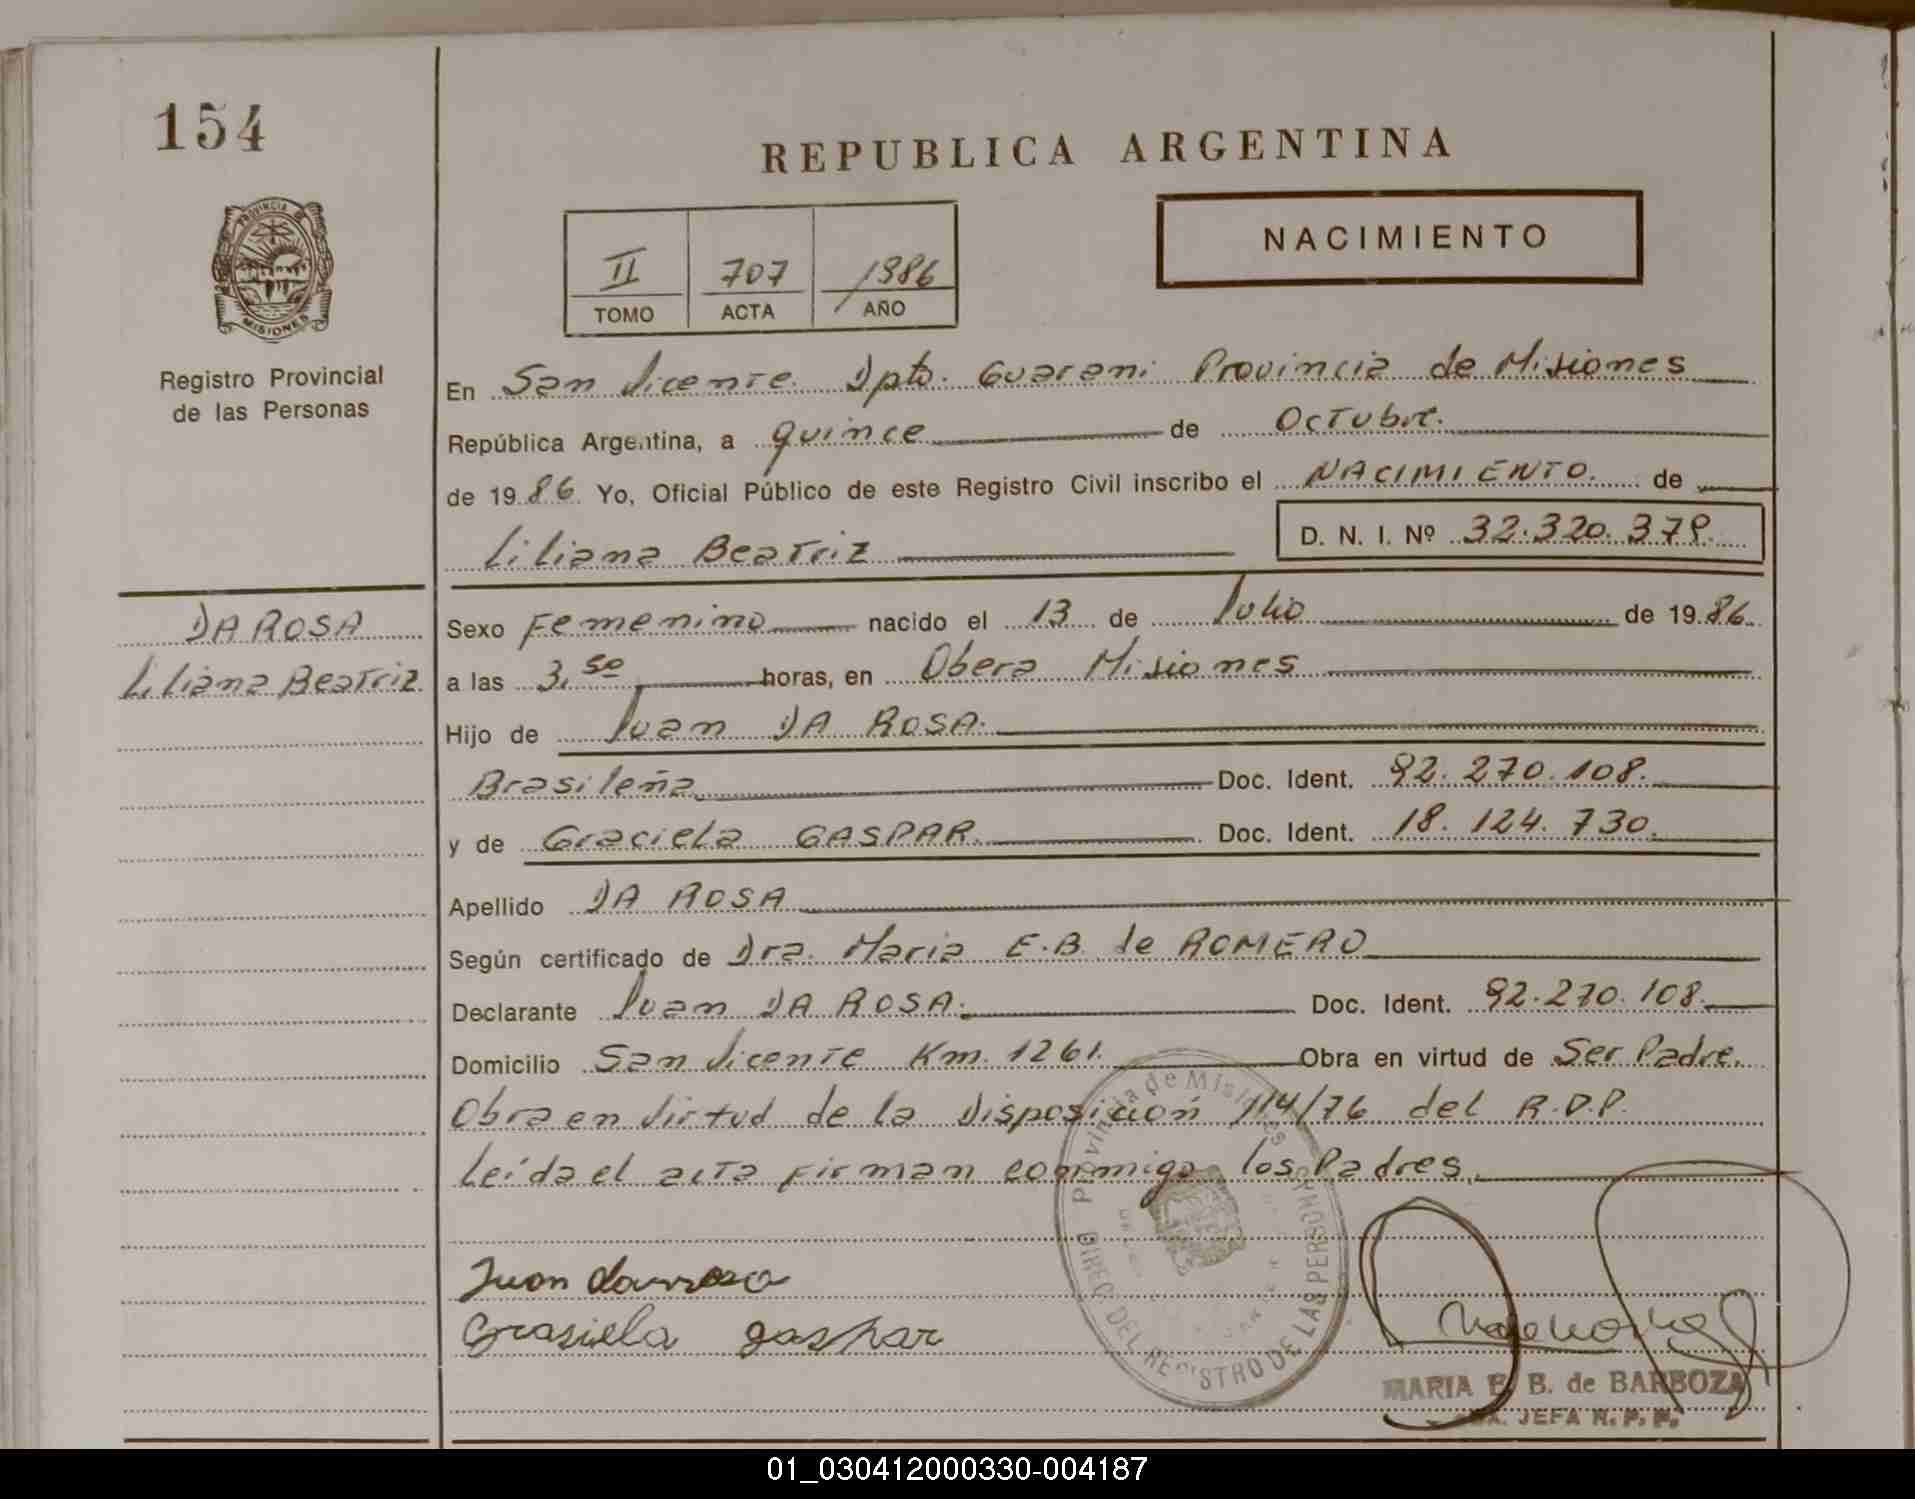 154
REPUBLICA ARGENTINA
PROVINCIA D
MISIONES
II 707 1986
TOMO ACTA AÑO
NACIMIENTO
Registro Provincial
de las Personas
En San Vicente Dpto. Guarani Provincia de Misiones
República Argentina, a quince de Octubre.
de 1986 Yo, Oficial Público de este Registro Civil inscribo el NACIMIENTO. de
Liliana Beatriz D. N. I. Nº 32.320.379.
DA ROSA
Liliana Beatriz
Sexo Femenino nacido el 13 de Julio de 1986.
a las 3,50 horas, en Obera Misiones
Hijo de Juan DA ROSA.
Brasileña Doc. Ident. 92.270.108.
y de Graciela GASPAR. Doc. Ident. 18.124.730.
Apellido DA ROSA
Según certificado de Dra. Maria E.B. de ROMERO
Declarante Juan DA ROSA. Doc. Ident. 92.270.108.
Domicilio San Vicente Km. 1261. Obra en virtud de Ser Padre.
Obra en Virtud de la Disposición 114/76 del R.D.P.
Leída el acta firman conmigo los Padres.
Provincia de Misiones
DIREC. DEL REGISTRO DE LAS PERSONAS
Juan darrosa
Grasiela gaspar
MARIA E. B. de BARBOZA
JEFA R. P. P.
01_030412000330-004187